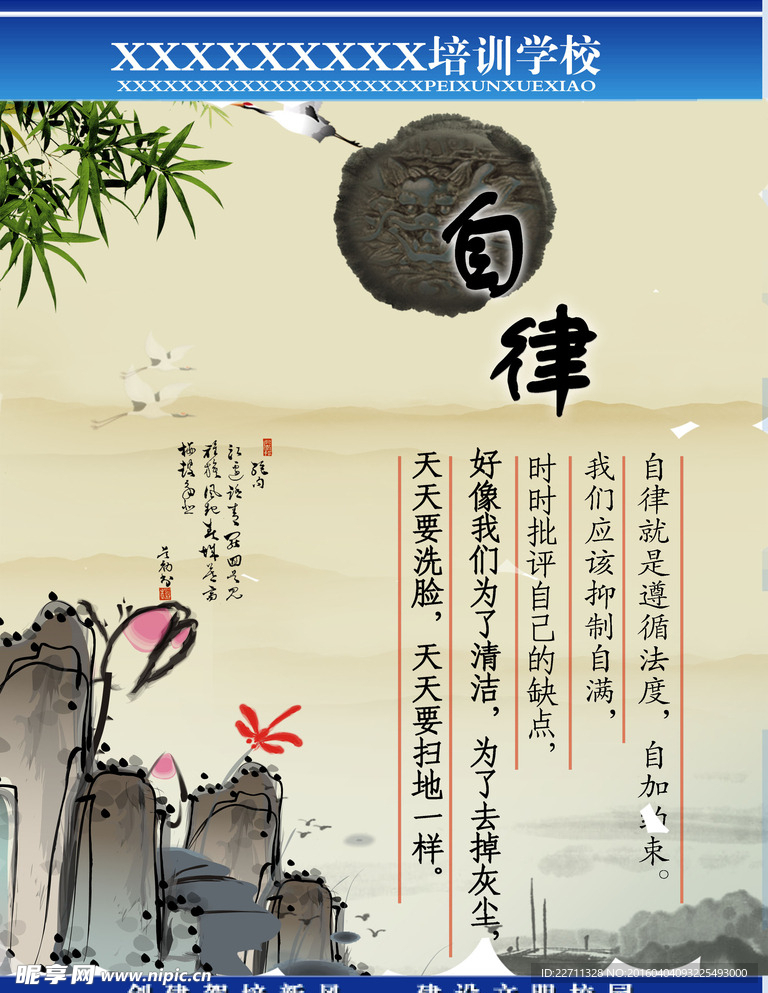 XXXXXXXXX培训学校
XXXXXXXXXXXXXXXXXXXXPEIXUNXUEXIAO
自律
自律就是遵循法度，自加约束。
我们应该抑制自满，
时时批评自己的缺点，
好像我们为了清洁，为了去掉灰尘，
天天要洗脸，天天要扫地一样。
绝句
昵享网 www.nipic.cn
ID:22711328 NO:20160404093225493000